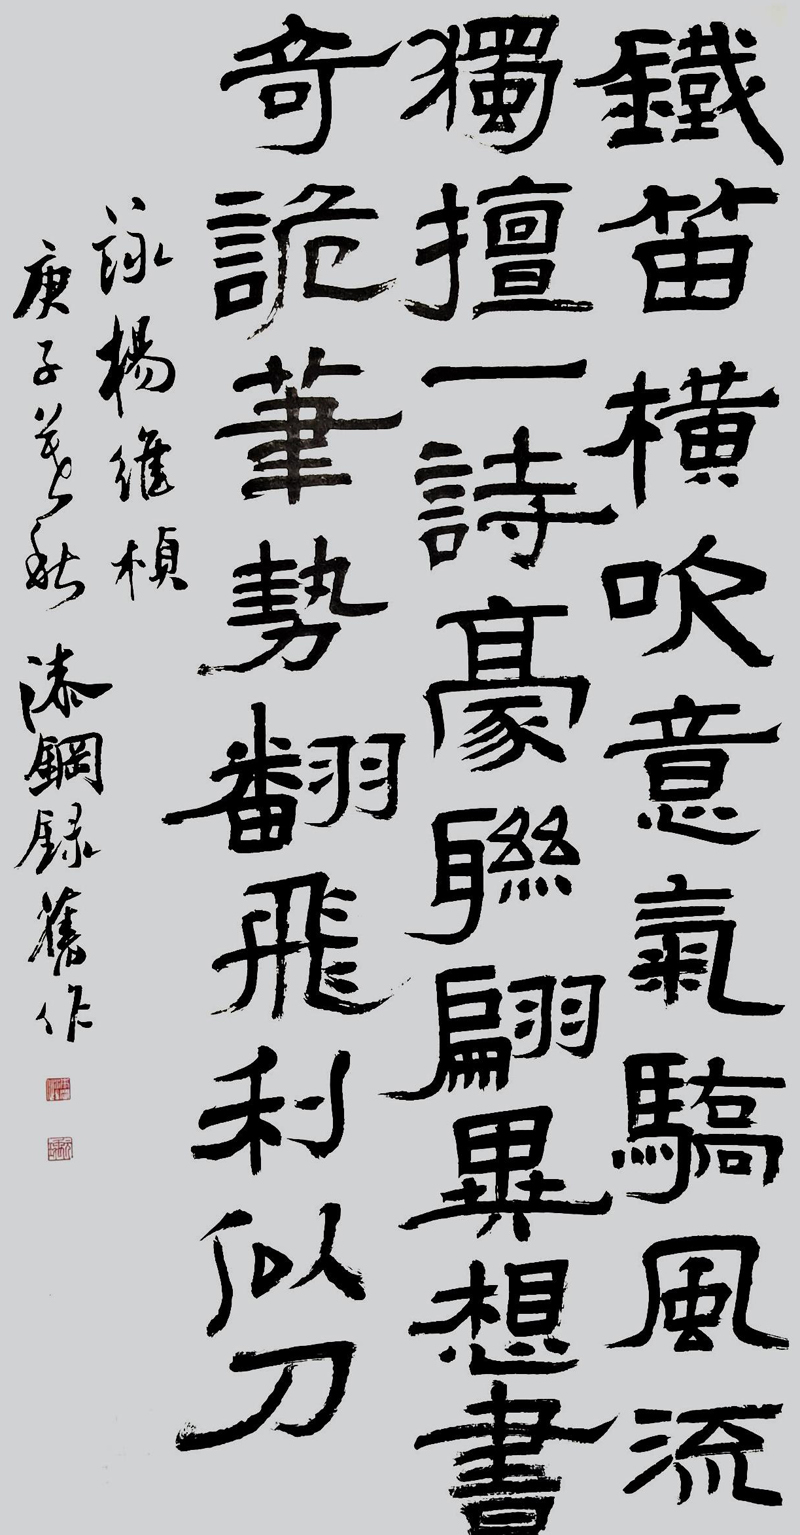 鐵笛橫吹意氣驕風流
獨擅一詩豪聯翩異想書
奇詭筆勢翻飛利似刀
詠楊維楨
庚子暮秋 漆鋼錄舊作